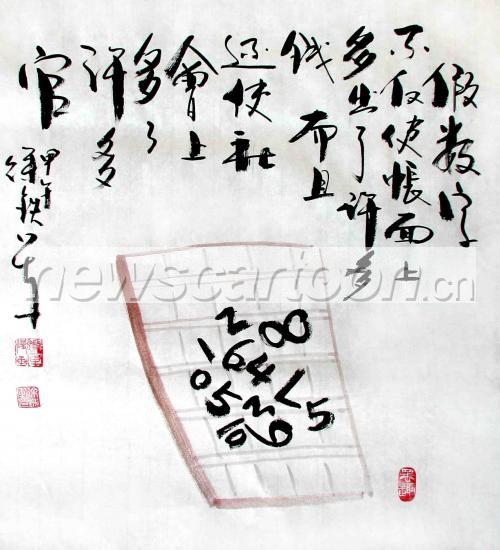 假数字
不仅使帳面上
多出了许多
钱而且
还使社
會上
多了
许多
官
甲午
newscartoon.cn
2 00
1 6 4
0 5 2 7 5